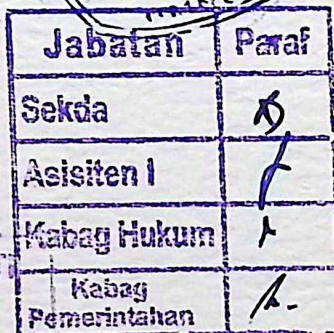 Jabatan Paraf
Sekda
Asisiten I
Kabag Hukum
Kabag
Pemerintahan